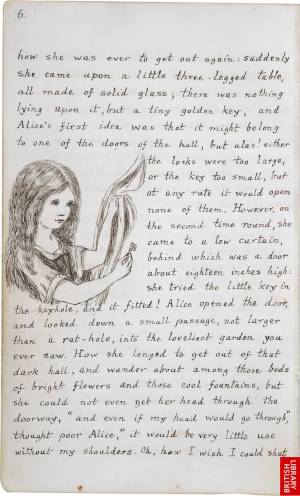 6.
how she was ever to get out again: suddenly
she came upon a little three-legged table,
all made of solid glass; there was nothing
lying upon it, but a tiny golden key, and
Alice's first idea was that it might belong
to one of the doors of the hall, but alas! either
the locks were too large,
or the key too small, but
at any rate it would open
none of them. However, on
the second time round, she
came to a low curtain,
behind which was a door
about eighteen inches high:
she tried the little key in
the keyhole, and it fitted! Alice opened the door,
and looked down a small passage, not larger
than a rat-hole, into the loveliest garden you
ever saw. How she longed to get out of that
dark hall, and wander about among those beds
of bright flowers and those cool fountains, but
she could not even get her head through the
doorway, "and even if my head would go through,"
thought poor Alice, "it would be very little use
without my shoulders. Oh, how I wish I could shut
BRITISH
LIBRARY